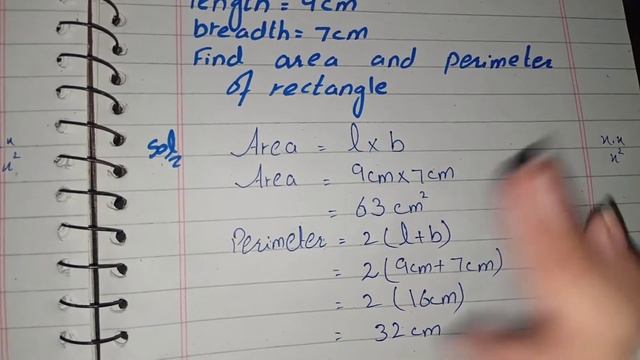 length = 9cm
breadth = 7cm
Find area and perimeter
of rectangle
Soln
Area = l x b
Area = 9cm x 7cm
= 63 cm²
Perimeter = 2 (l+b)
= 2 (9cm + 7cm)
= 2 (16cm)
= 32 cm
x
x²
x.x
x²